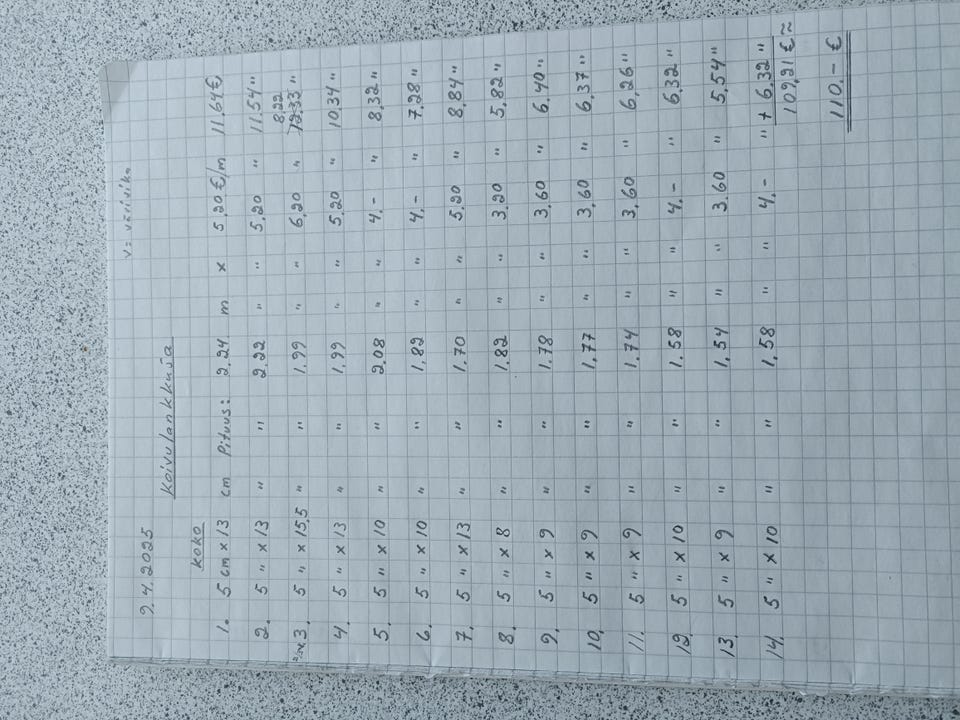 v = värivika
9.4.2025
Koivulankkuja
Koko
1. 5 cm x 13 cm Pituus: 2,24 m x 5,20 €/m 11,64 €
2. 5 " x 13 " " 2,22 " " 5,20 " 11,54 "
8,22
3. 5 " x 15,5 " " 1,99 " " 6,20 " 12,33 "
4. 5 " x 13 " " 1,99 " " 5,20 " 10,34 "
5. 5 " x 10 " " 2,08 " " 4,- " 8,32 "
6. 5 " x 10 " " 1,82 " " 4,- " 7,28 "
7. 5 " x 13 " " 1,70 " " 5,20 " 8,84 "
8. 5 " x 8 " " 1,82 " " 3,20 " 5,82 "
9. 5 " x 9 " " 1,78 " " 3,60 " 6,40 "
10. 5 " x 9 " " 1,77 " " 3,60 " 6,37 "
11. 5 " x 9 " " 1,74 " " 3,60 " 6,26 "
12. 5 " x 10 " " 1,58 " " 4,- " 6,32 "
13. 5 " x 9 " " 1,54 " " 3,60 " 5,54 "
14. 5 " x 10 " " 1,58 " " 4,- " + 6,32 "
109,21 € ≈
110,- €